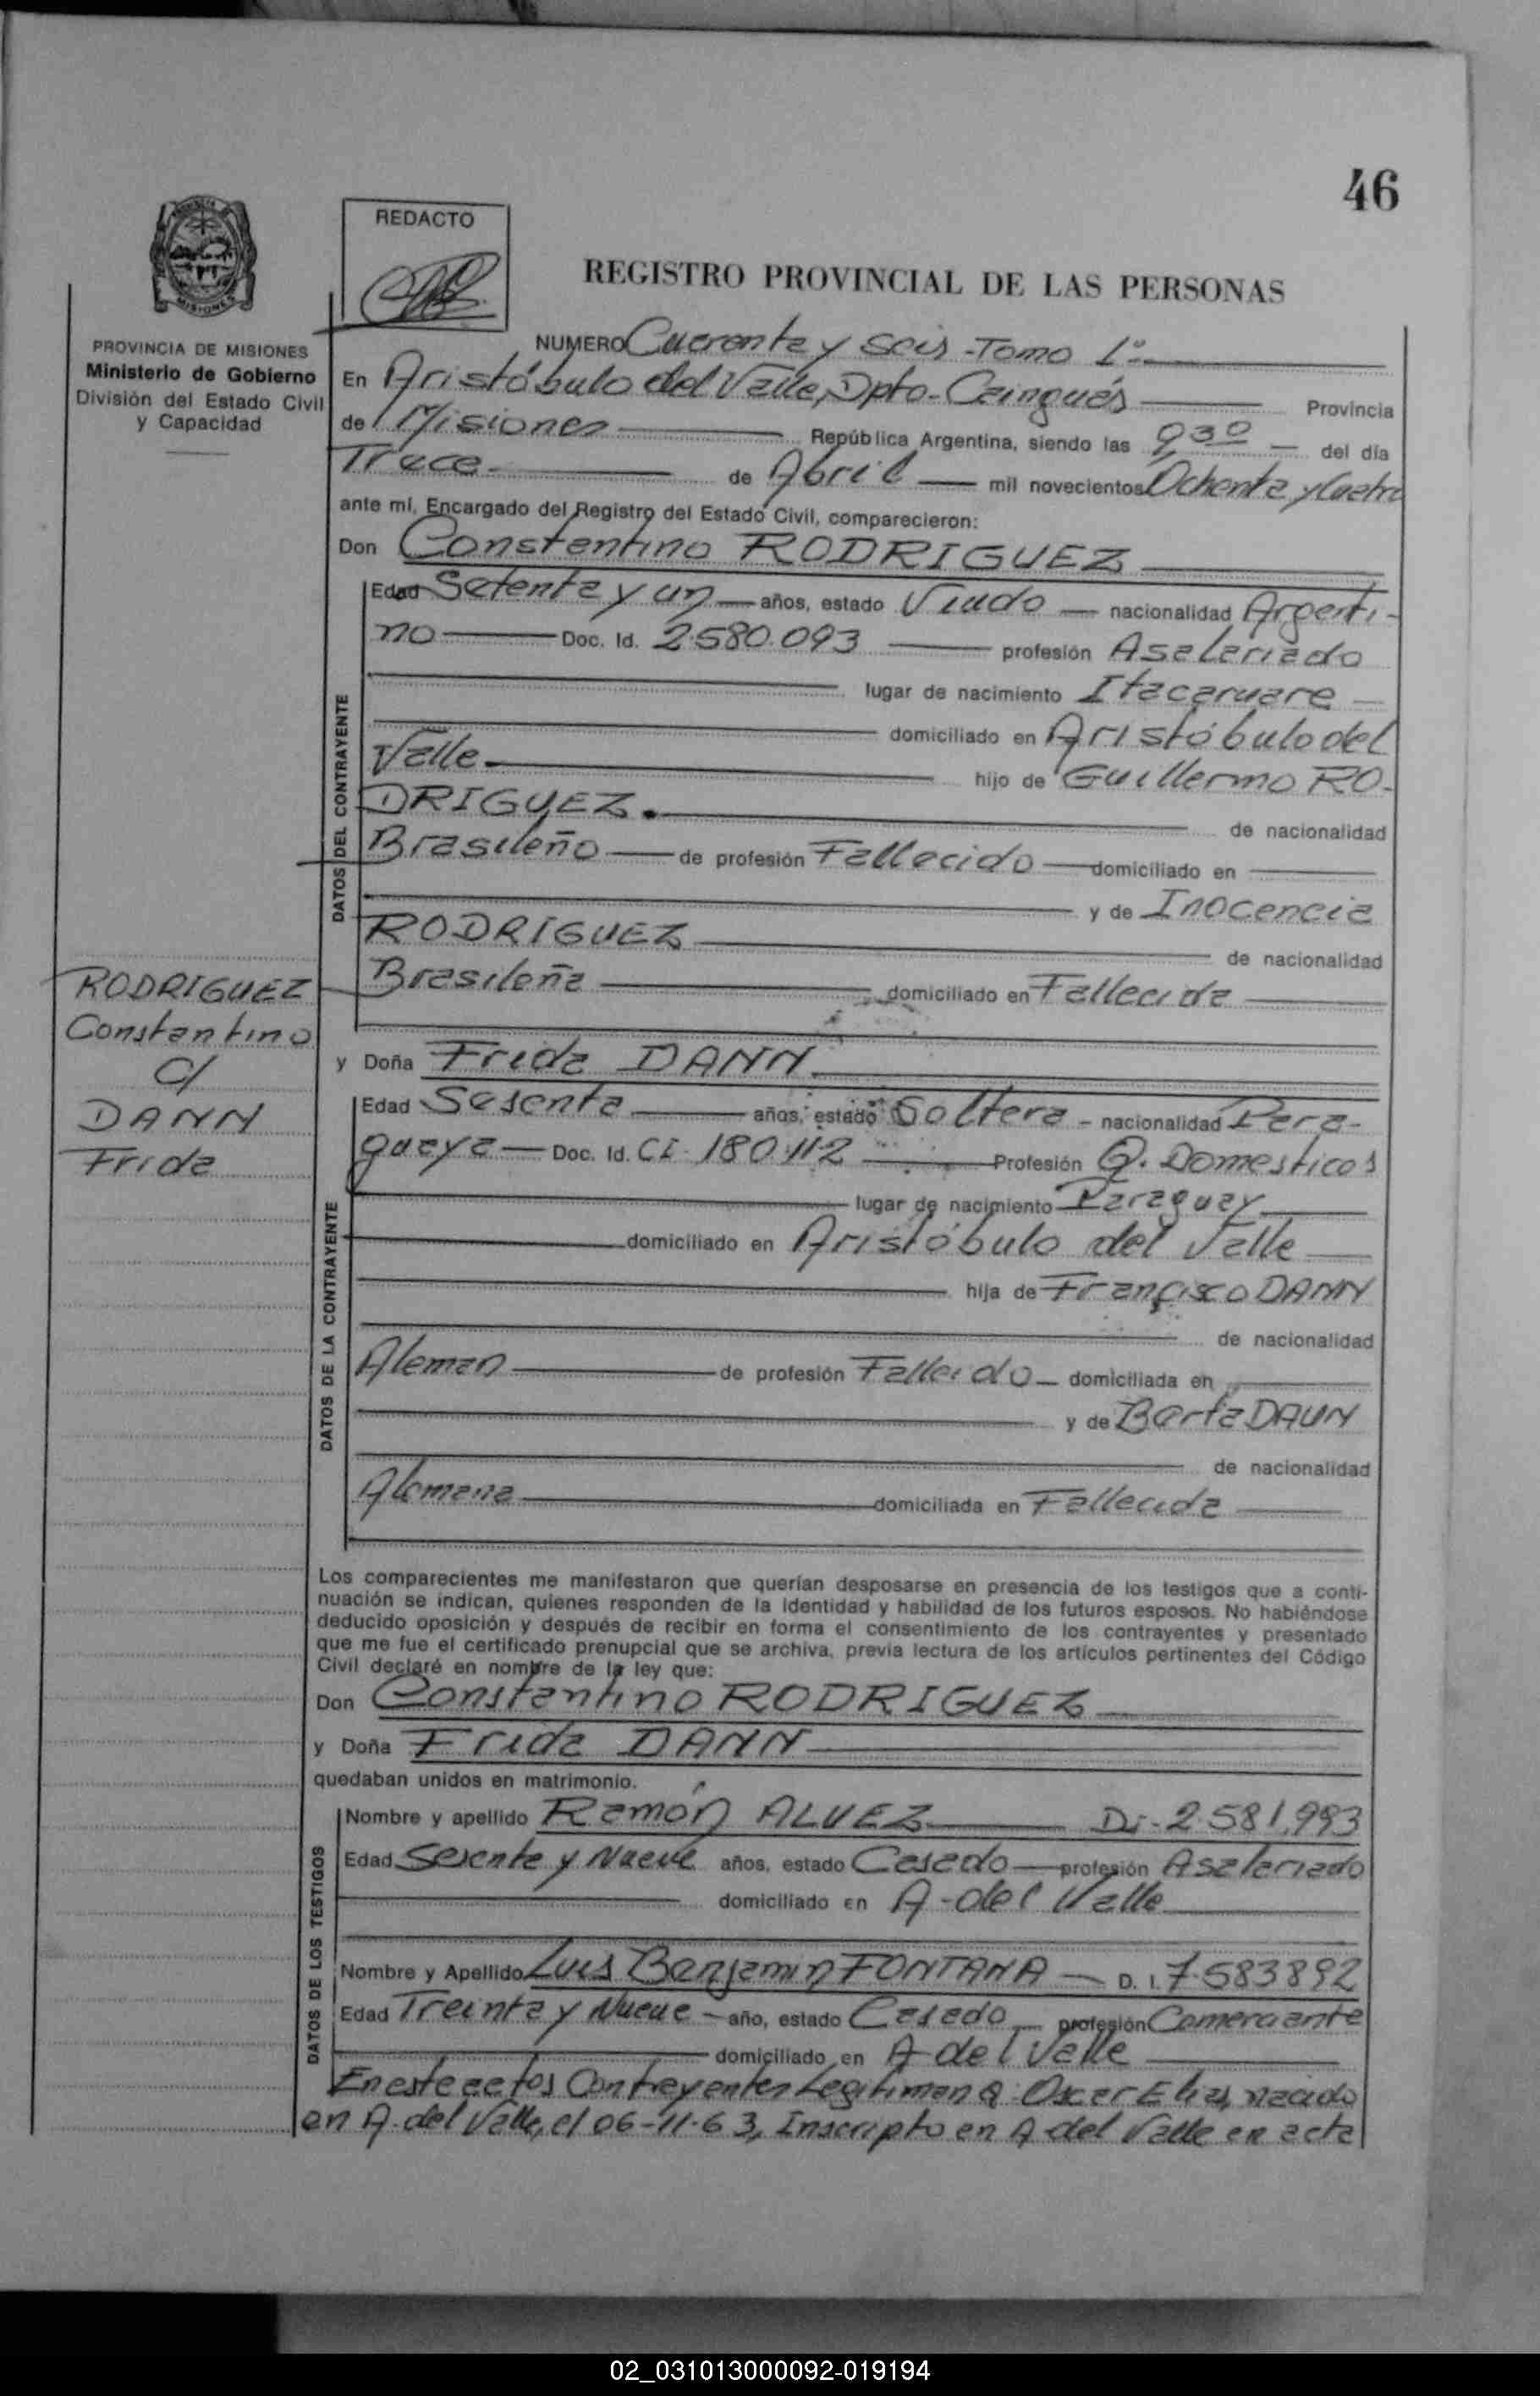 46
REDACTO
REGISTRO PROVINCIAL DE LAS PERSONAS
MISIONES
PROVINCIA DE MISIONES
Ministerio de Gobierno
División del Estado Civil
y Capacidad
NUMERO Cuarenta y seis - Tomo 1º
En Aristóbulo del Valle, Dpto. Cainguás Provincia
de Misiones República Argentina, siendo las 9,30 del día
Trece de Abril mil novecientos Ochenta y Cuatro
ante mí, Encargado del Registro del Estado Civil, comparecieron:
Don Constantino RODRIGUEZ
DATOS DEL CONTRAYENTE
Edad Setenta y un años, estado Viudo nacionalidad Argenti-
no Doc. Id. 2.580.093 profesión Asalariado
lugar de nacimiento Itacaruare
domiciliado en Aristóbulo del
Valle. hijo de Guillermo RO-
DRIGUEZ. de nacionalidad
Brasileño de profesión Fallecido domiciliado en
y de Inocencia
RODRIGUEZ de nacionalidad
Brasileña domiciliado en Fallecida
RODRIGUEZ
Constantino
C/
DANN
Frida
y Doña Frida DANN
DATOS DE LA CONTRAYENTE
Edad Sesenta años, estado Soltera - nacionalidad Para-
guaya Doc. Id. CI. 180.112 Profesión Q. Domesticos
lugar de nacimiento Paraguay
domiciliado en Aristóbulo del Valle
hija de Francisco DANN
de nacionalidad
Aleman de profesión Fallecido domiciliada en
y de Berta DAUN
de nacionalidad
Alemana domiciliada en Fallecida
Los comparecientes me manifestaron que querían desposarse en presencia de los testigos que a conti-
nuación se indican, quienes responden de la identidad y habilidad de los futuros esposos. No habiéndose
deducido oposición y después de recibir en forma el consentimiento de los contrayentes y presentado
que me fue el certificado prenupcial que se archiva, previa lectura de los artículos pertinentes del Código
Civil declaré en nombre de la ley que:
Don Constantino RODRIGUEZ
y Doña Frida DANN
quedaban unidos en matrimonio.
DATOS DE LOS TESTIGOS
Nombre y apellido Ramón ALVEZ Di. 2.581.993
Edad Sesenta y Nueve años, estado Casado profesión Asalariado
domiciliado en A. del Valle
Nombre y Apellido Luis Benjamin FONTANA D. I. 7.583892
Edad Treinta y Nueve año, estado Casado profesión Comerciante
domiciliado en A del Valle
En este acto los Contrayentes Legitiman a: Oscar Elias, nacido
en A. del Valle, el 06-11-63, Inscripto en A del Valle en acta
02_031013000092-019194